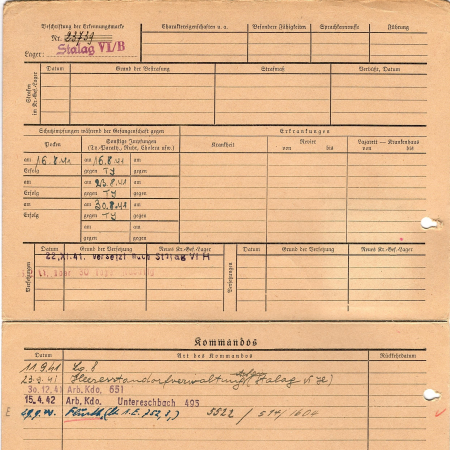 Beschriftung der Erkennungsmarke
Nr. 23739
Lager: Stalag VI/B
Charaktereigenschaften u. a. Besondere Fähigkeiten Sprachkenntnisse Führung
Strafen im Kr.-Gef.-Lager
Datum Grund der Bestrafung Strafmaß Verbüßt, Datum
Schutzimpfungen während der Gefangenschaft gegen
Erkrankungen
Pocken
Sonstige Impfungen (Ty.-Parath., Ruhr, Cholera usw.)
Krankheit
Revier von bis
Lazarett — Krankenhaus von bis
am 16.8.41 am 16.8.41 am
Erfolg gegen TY gegen
am am 23.8.41 am
Erfolg gegen TY gegen
am am 30.8.41 am
Erfolg gegen TY gegen
Versetzungen
Datum Grund der Versetzung Neues Kr.-Gef.-Lager
Versetzungen
Datum Grund der Versetzung Neues Kr.-Gef.-Lager
22.XI.41. versetzt nach Stalag VI H
Kommandos
Datum Art des Kommandos Rückkehrdatum
11.9.41
23.9.41 Heeresstandortverwaltung (Stalag VI H)
30.12.41 Arb. Kdo. 651
15.4.42 Arb. Kdo. Untereschbach 493
E